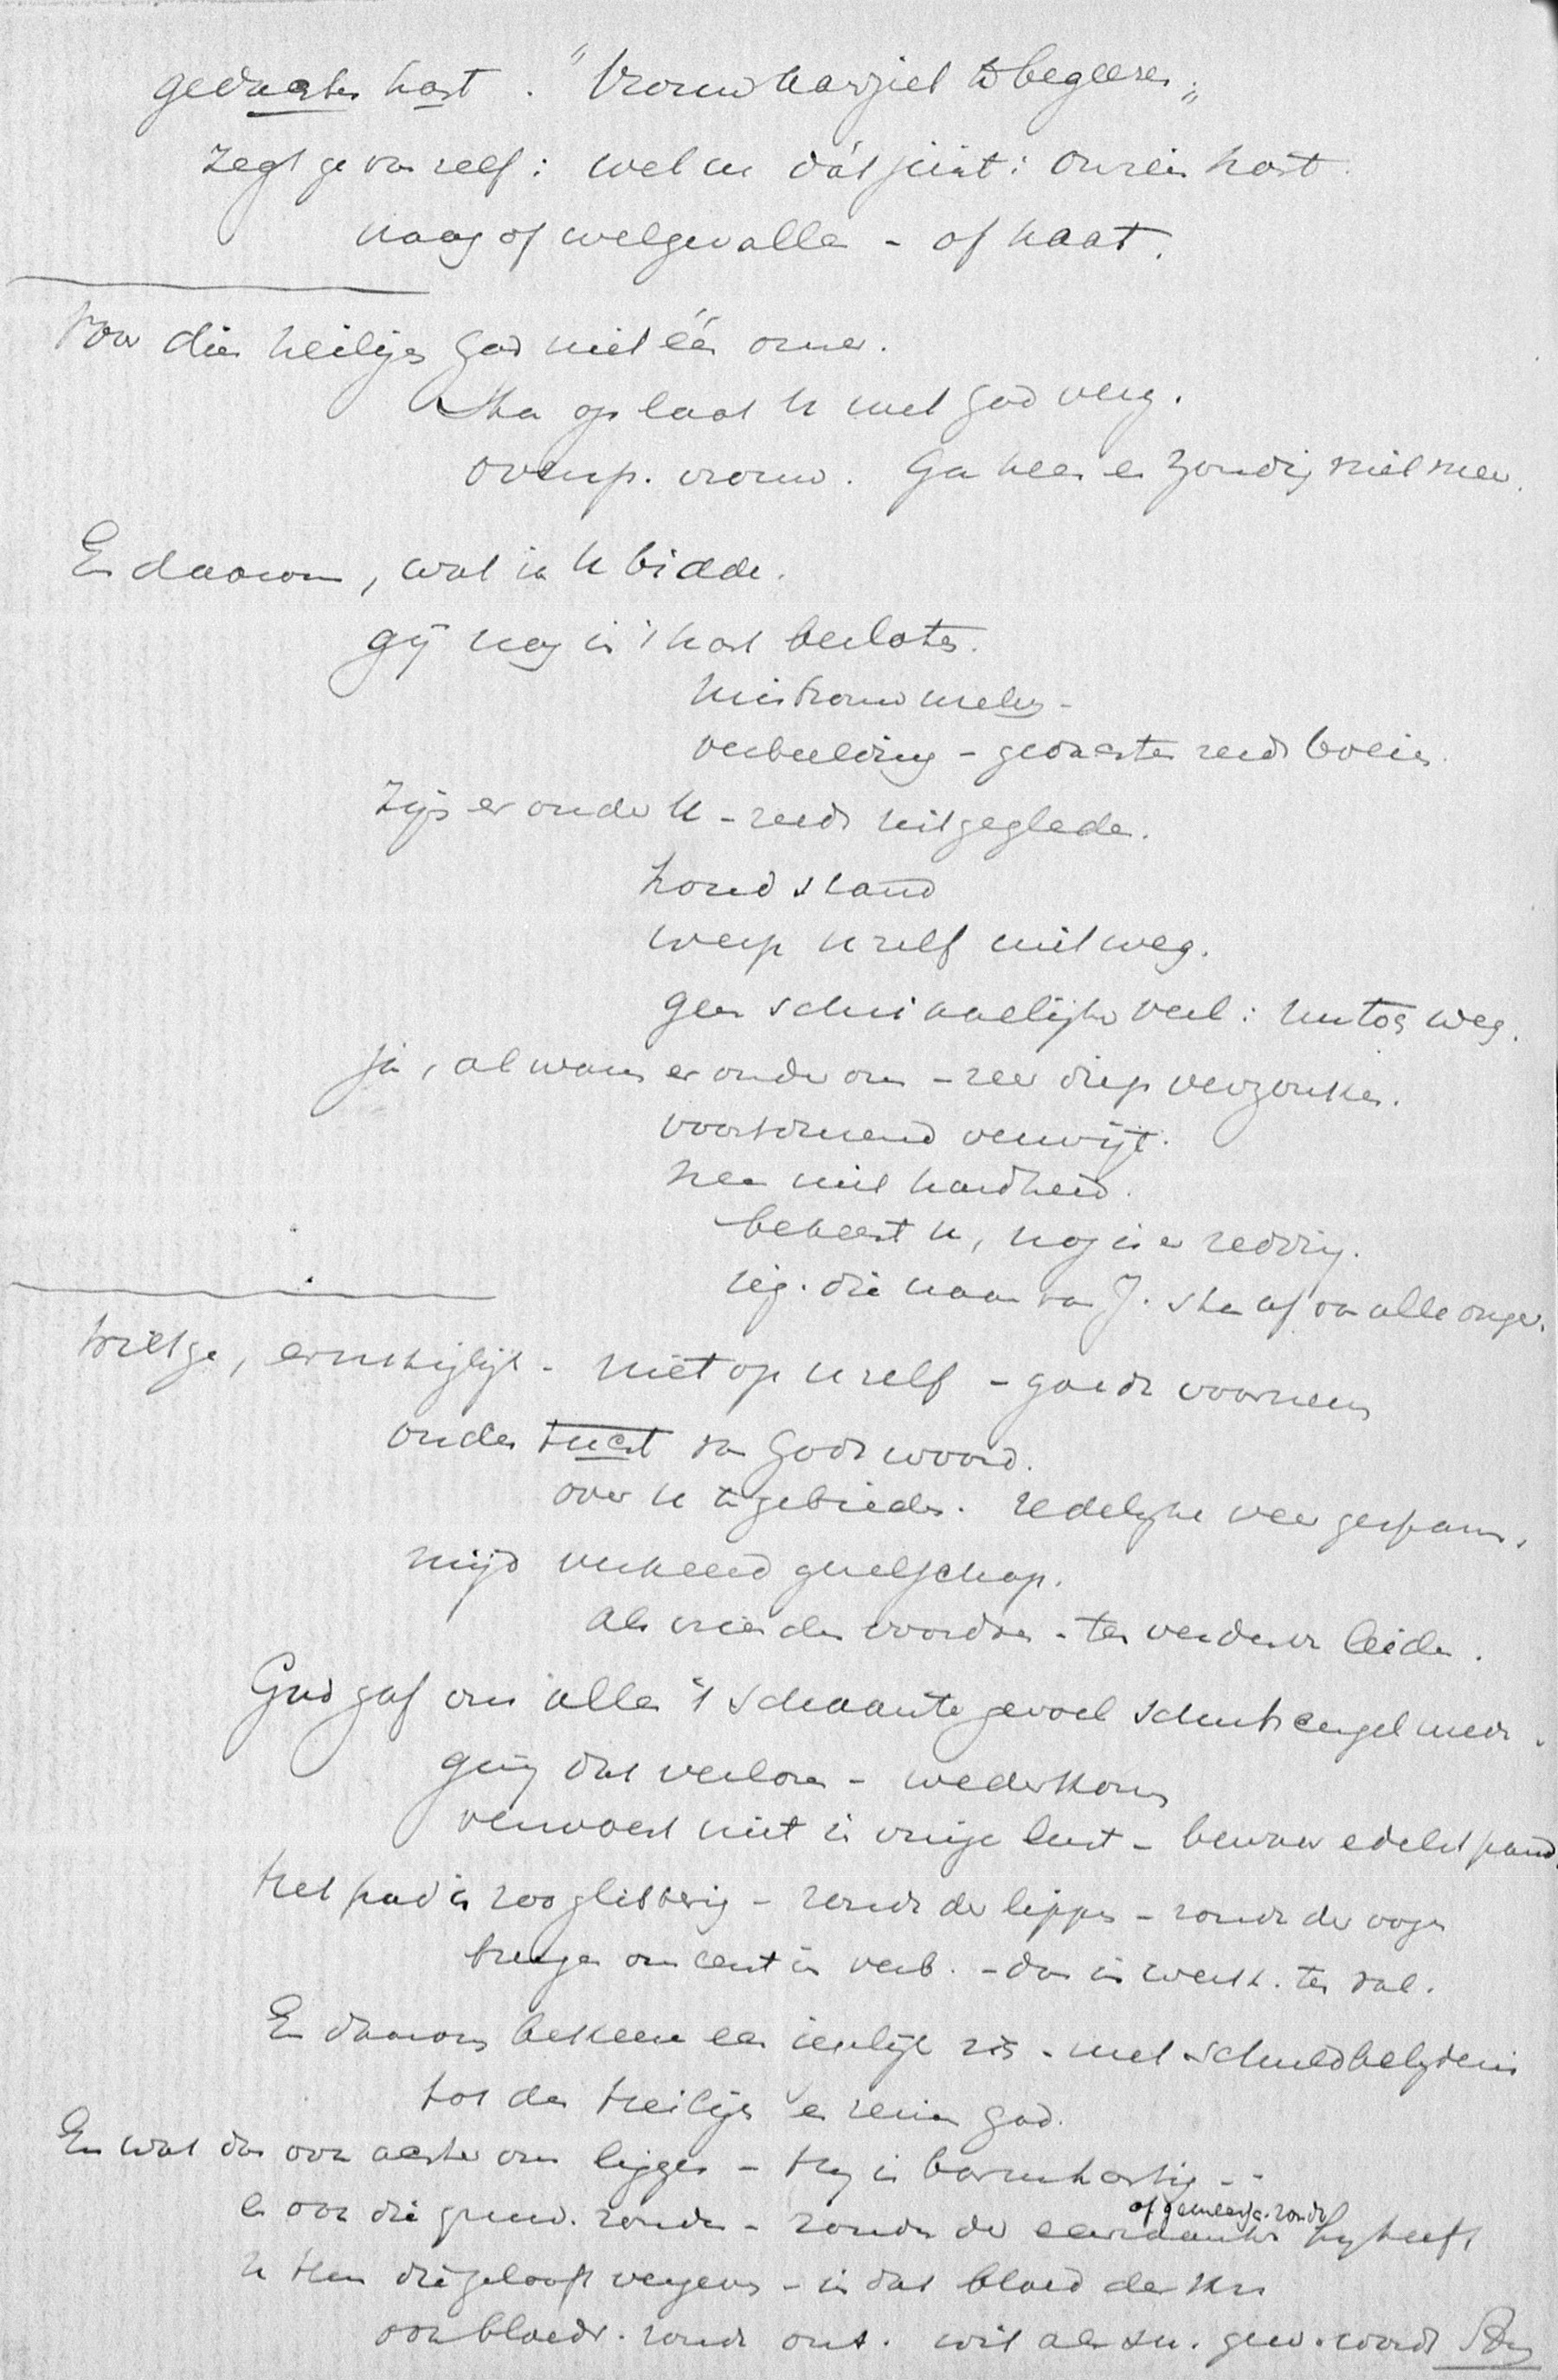 gedachten hart. "Vrouw aanziet te begeeren"
zegt ge van zelf: wel en dát juist: onrein hart.
haag of welgevalle - of haat.
Voor dien heiligen God niet één onzer.
Sta op laat U met God verz.
oversp. vrouw. Ga heen en zondig niet meer.
En daarom, wat ik U bidde.
gij nog in 't hart besloten.
mistrouw
verbeelding - gedachten reeds boeien.
Zijn er onder U - reeds uitgegleden.
houd stand
werp U zelf niet weg.
geen schrikkelijker veel: weg.
ja, al waren er onder ons - zeer diep verzonken.
verwijt.
neen niet hardheid.
bekeert U, nog is er redding.
ieg. die naam van J. sta af van alle onger.
Wilt ge, ernstiglijk - niet op U zelf - goede voornem
onder tucht van Gods woord.
over U te gebieden. redelijke weer gespann.
mijd verkeerd gezelschap.
als vrienden woorden - ten verderve leiden.
God gaf ons allen 't schaamtegevoel schutsengel mede.
ging dat verloren - wederkom
verwoest niet in vrije lust - bewaar edelst pand.
Het pad is zoo glibberig - zonde der lippen - zonde der oogen
brengen ons eerst in verb. - dan in werk. ten val.
En daarom bekeere een iegelijk zich - met schuldbelijdenis
tot den Heiligen en reinen God.
En wat dan ook achter ons ligge - Hij is barmhartig - -
en ook die gruw. zonde - zonde der of gemeensch. zonde hij heeft
U Hem die gelooft vergeven - in dat bloed des Krs
ook bloedr. zonde ons. wit als sn. gew. word Am